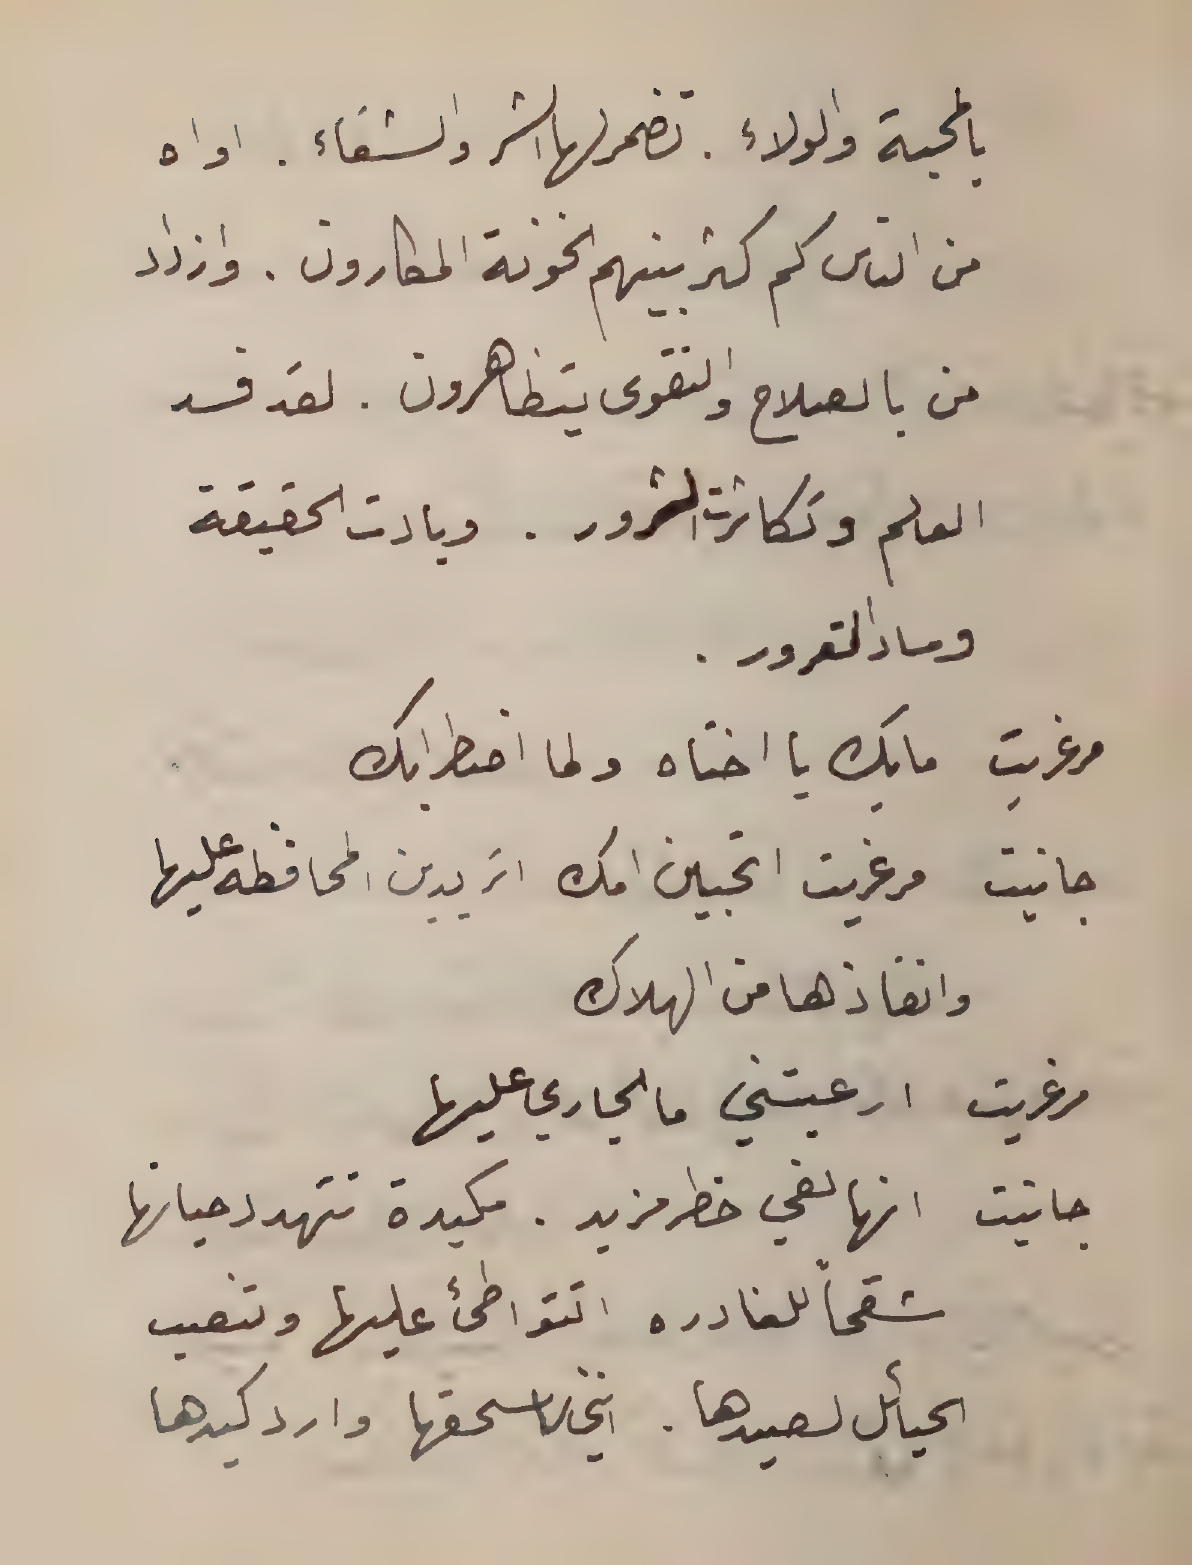 بالمحبة والولاء . تضمر لها الشر والشقاء . اواه
من الناس كم كثر بينهم الخونة المكارون . وازداد
من بالصلاح والتقوى يتظاهرون . لقد فسد
العالم وتكاثرت الشرور . وبادت الحقيقة
وساد الغرور .
مرغريت مابك يا اختاه ولما اضطرابك
جانيت مرغريت اتحبين امك اتريدين المحافظه عليها
وانقاذها من الهلاك
مرغريت ارعبتني ما الجاري عليها
جانيت انها لفي خطر مزيد . مكيدة تتهدد حياتها
سقحاً للغادره اتتواطئ عليها وتنصب
الحبائل لصيدها . انني لاسحقها وارد كيدها